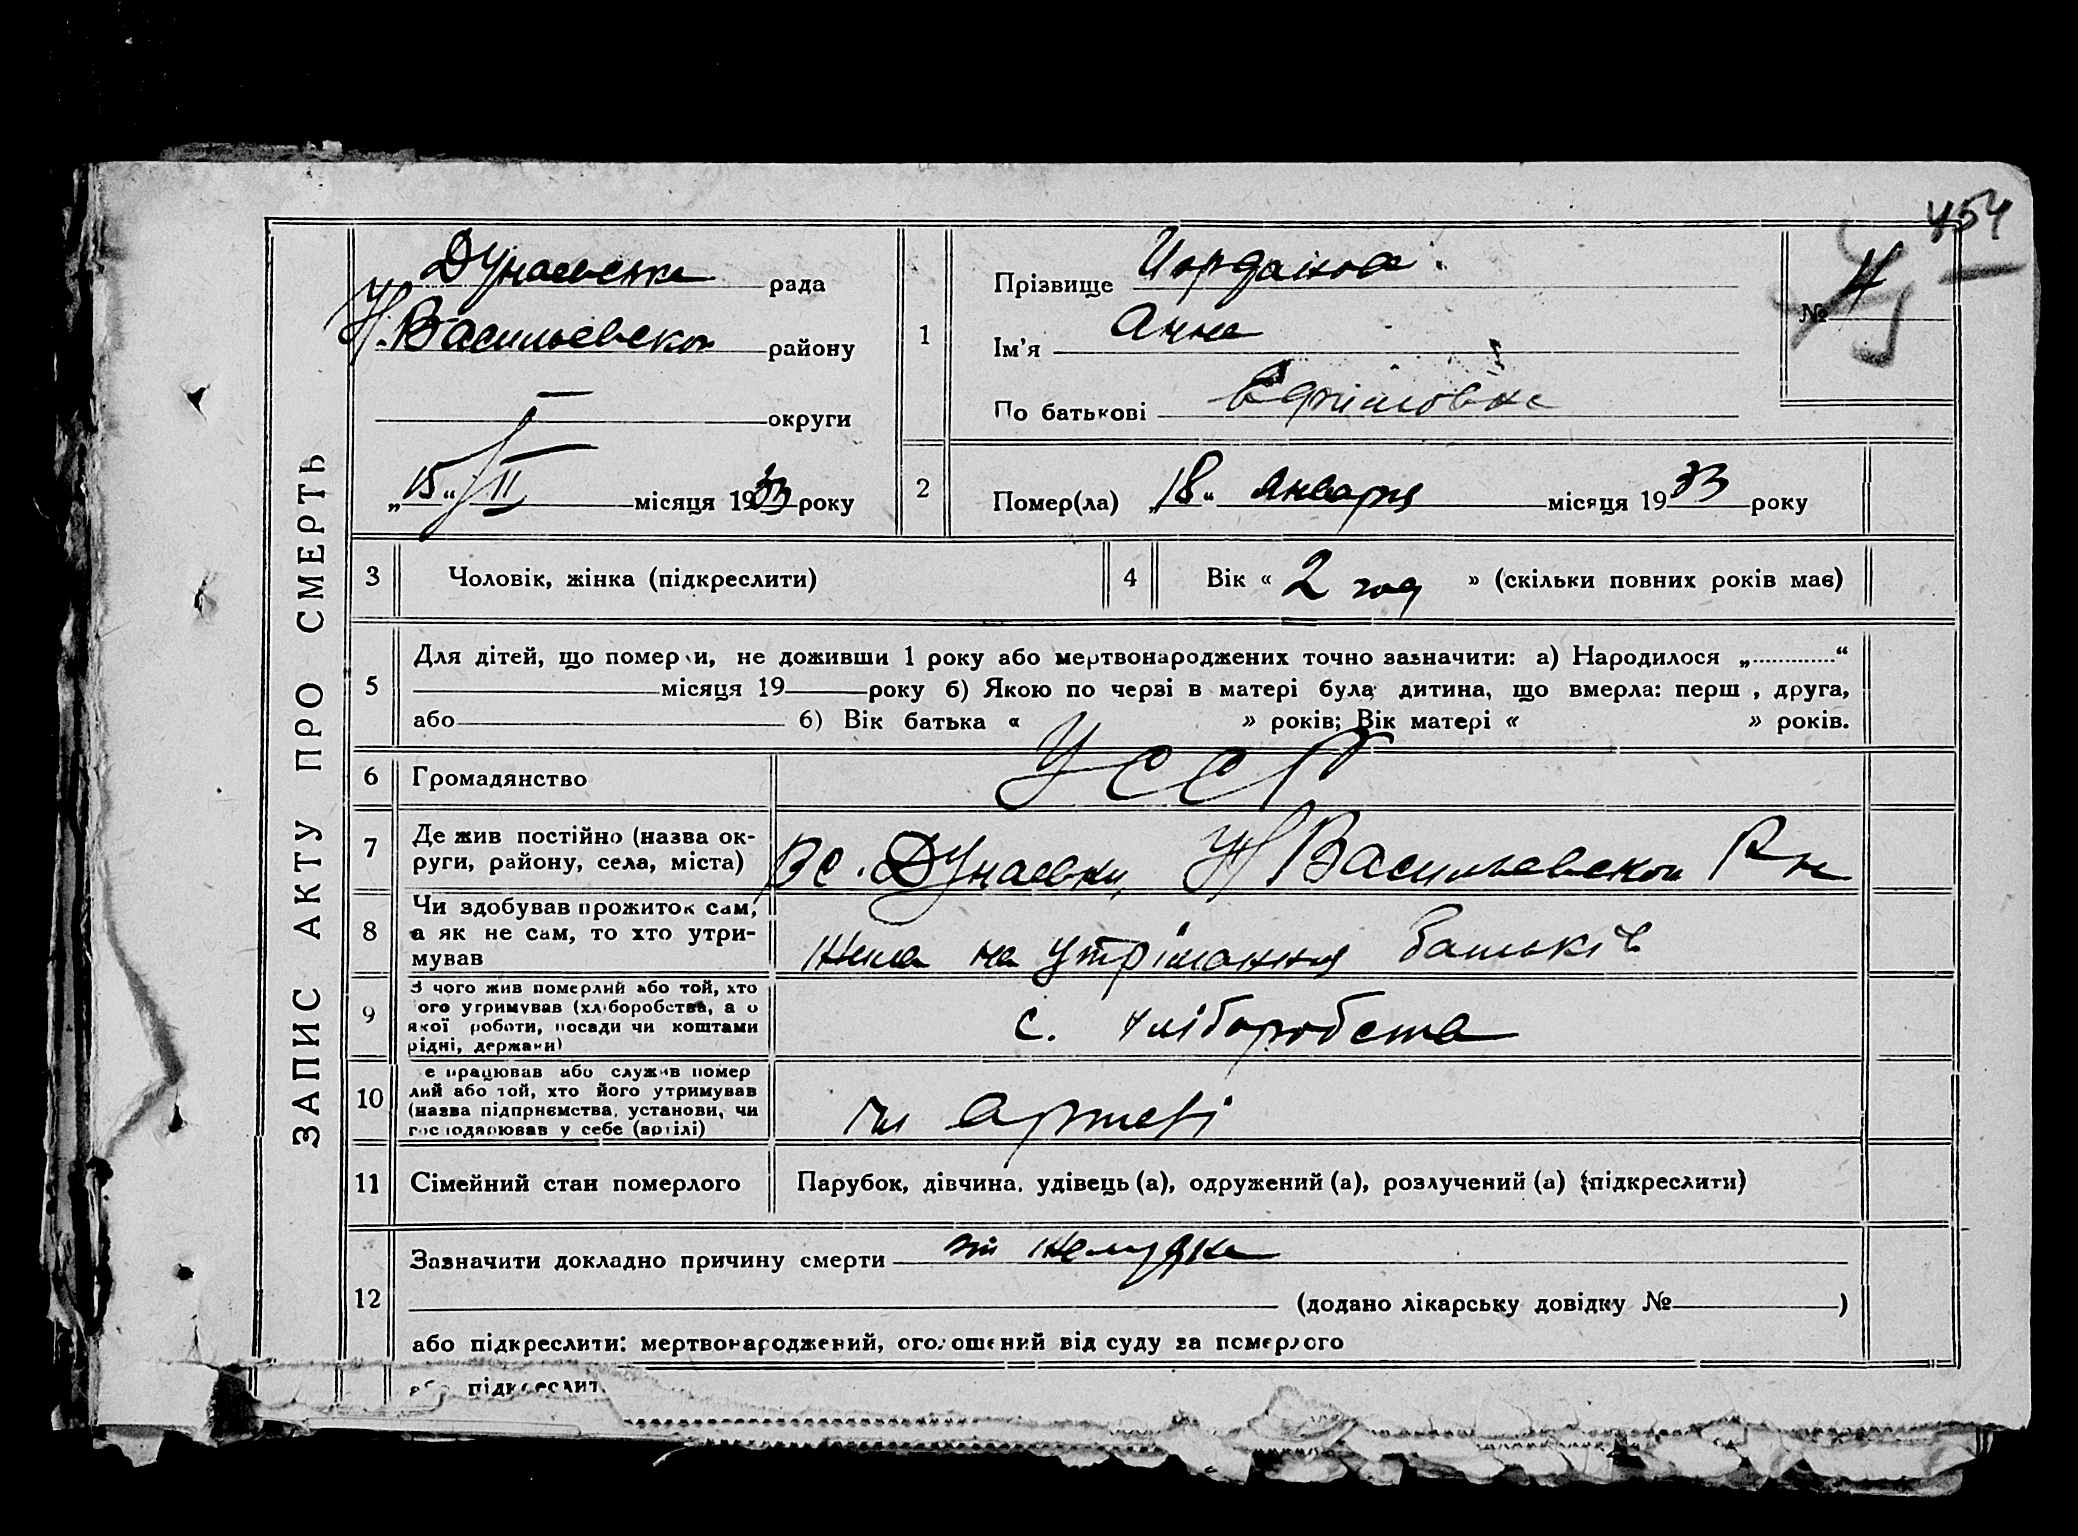 454
ЗАПИС АКТУ ПРО СМЕРТЬ
Дунаевська рада
Н. Васильевског району
округи
„15“ II місяця 1933 року
1
Прізвище Иорданова
Ім’я Анна
По батькові
№ 4
2
Помер(ла) „18“ января місяця 1933 року
3 Чоловік, жінка (підкреслити)
4 Вік « 2 год » (скільки повних років має)
5
Для дітей, що померли, не доживши 1 року або мертвонароджених точно зазначити: а) Народилося „ “
місяця 19 року б) Якою по черзі в матері була дитина, що вмерла: перш , друга,
або б) Вік батька « » років; Вік матері « » років.
6 Громадянство УССР
7 Де жив постійно (назва ок-
руги, району, села, міста) с. Дунаевки, Н Васильевского Р н
8 Чи здобував прожиток сам,
а як не сам, то хто утри-
мував жила на утріманния батьків
9 З чого жив померлий або той, хто
ого утримував (хліборобства, а о
якої роботи, посади чи коштами
рідні, держави) с. хліборобства
10 е працював або служив помер
лий або той, хто його утримував
(назва підприємства, установи, чи
господарював у себе (артілі) артелі
11 Сімейний стан померлого Парубок, дівчина, удівець (а), одружений (а), розлучений (а) (підкреслити)
12
Зазначити докладно причину смерти желудка
(додано лікарську довідку № )
або підкреслити: мертвонароджений, оголошений від суду за померлого
підкреслит